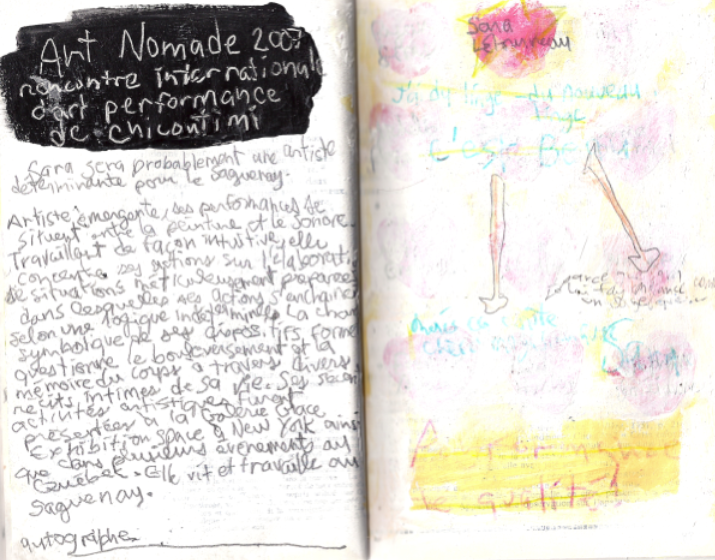 Art Nomade 2007
rencontre internationale
d'art performance
de chicoutimi
Sara sera probablement une artiste
déterminante pour le Saguenay.
Artiste émergante, ses performances se
situent entre la peinture et le sonore.
Travaillant de façon intuitive, elle
concentre ses actions sur l'élaborati
de situations méticuleusement préparées
dans lesquelles ses actions s'enchaîne
selon une logique indéterminée. La char
symbolique de ses dispositifs forme
questionne le bouleversement et la
mémoire du corps à travers divers
récits intimes de sa vie. Ses récen
activités artistiques furent
présentées à la Galerie Glace
Exhibition Space à New York ainsi
que dans plusieurs événements au
Québec. Elle vit et travaille au
Saguenay.
autographe
Sara
Letourneau
J'ai du linge du nouveau
linge
c'est Beau
mais ça coûte
cher
Performance
de qualité